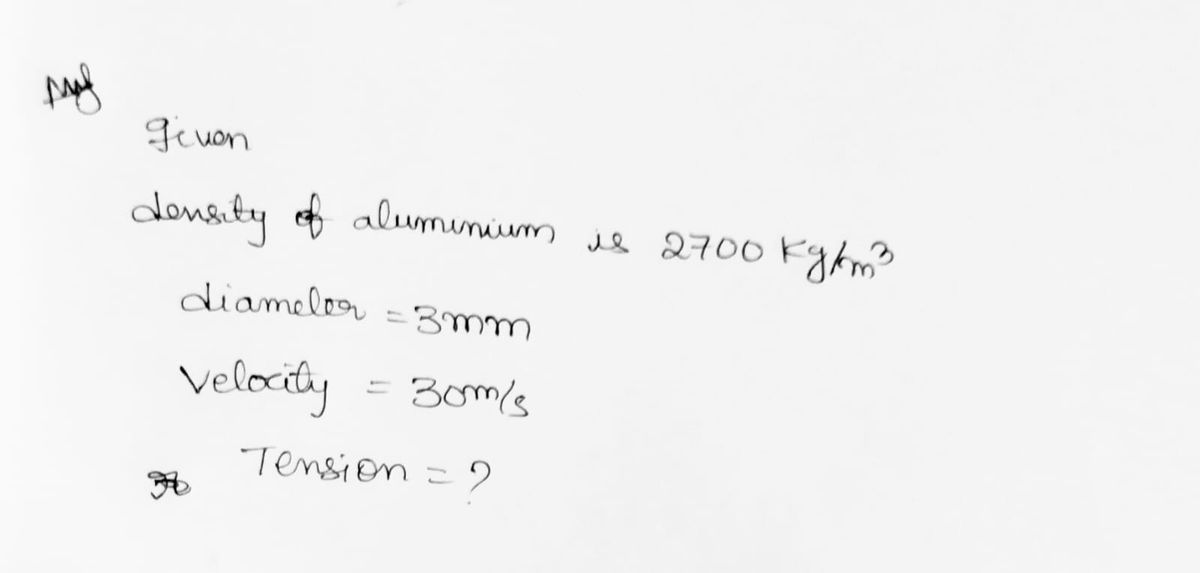 given
density of aluminium is 2700 Kg/m³
diameter = 3mm
Velocity = 30m/s
Tension = ?